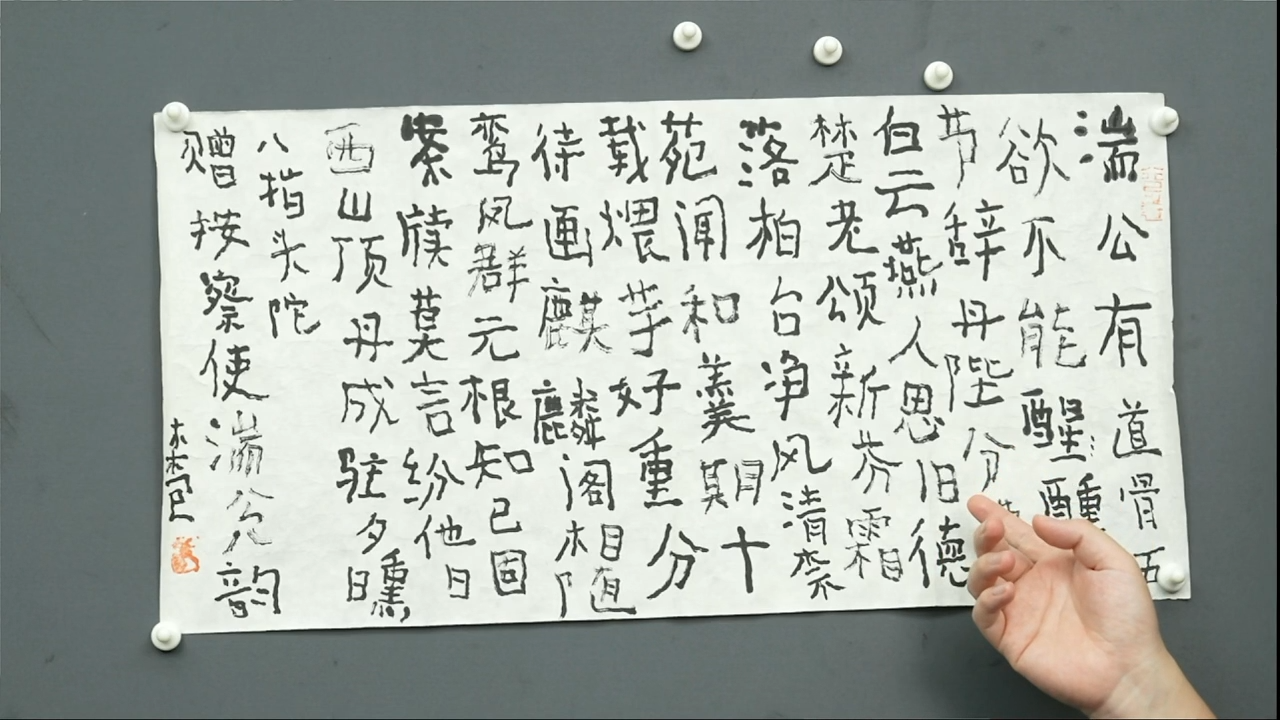 湍公有道骨
欲不能醒醺
节辞丹陛分
白云燕人思旧德
楚老颂新芬霜
落柏台净风清
苑闻和羹期十
载煨芋好重分
待画麒麟阁相随
鸾凤群元根知已固
案牍莫言纷他日
西山顶丹成驻夕曛
八指头陀
赠按察使湍公韵